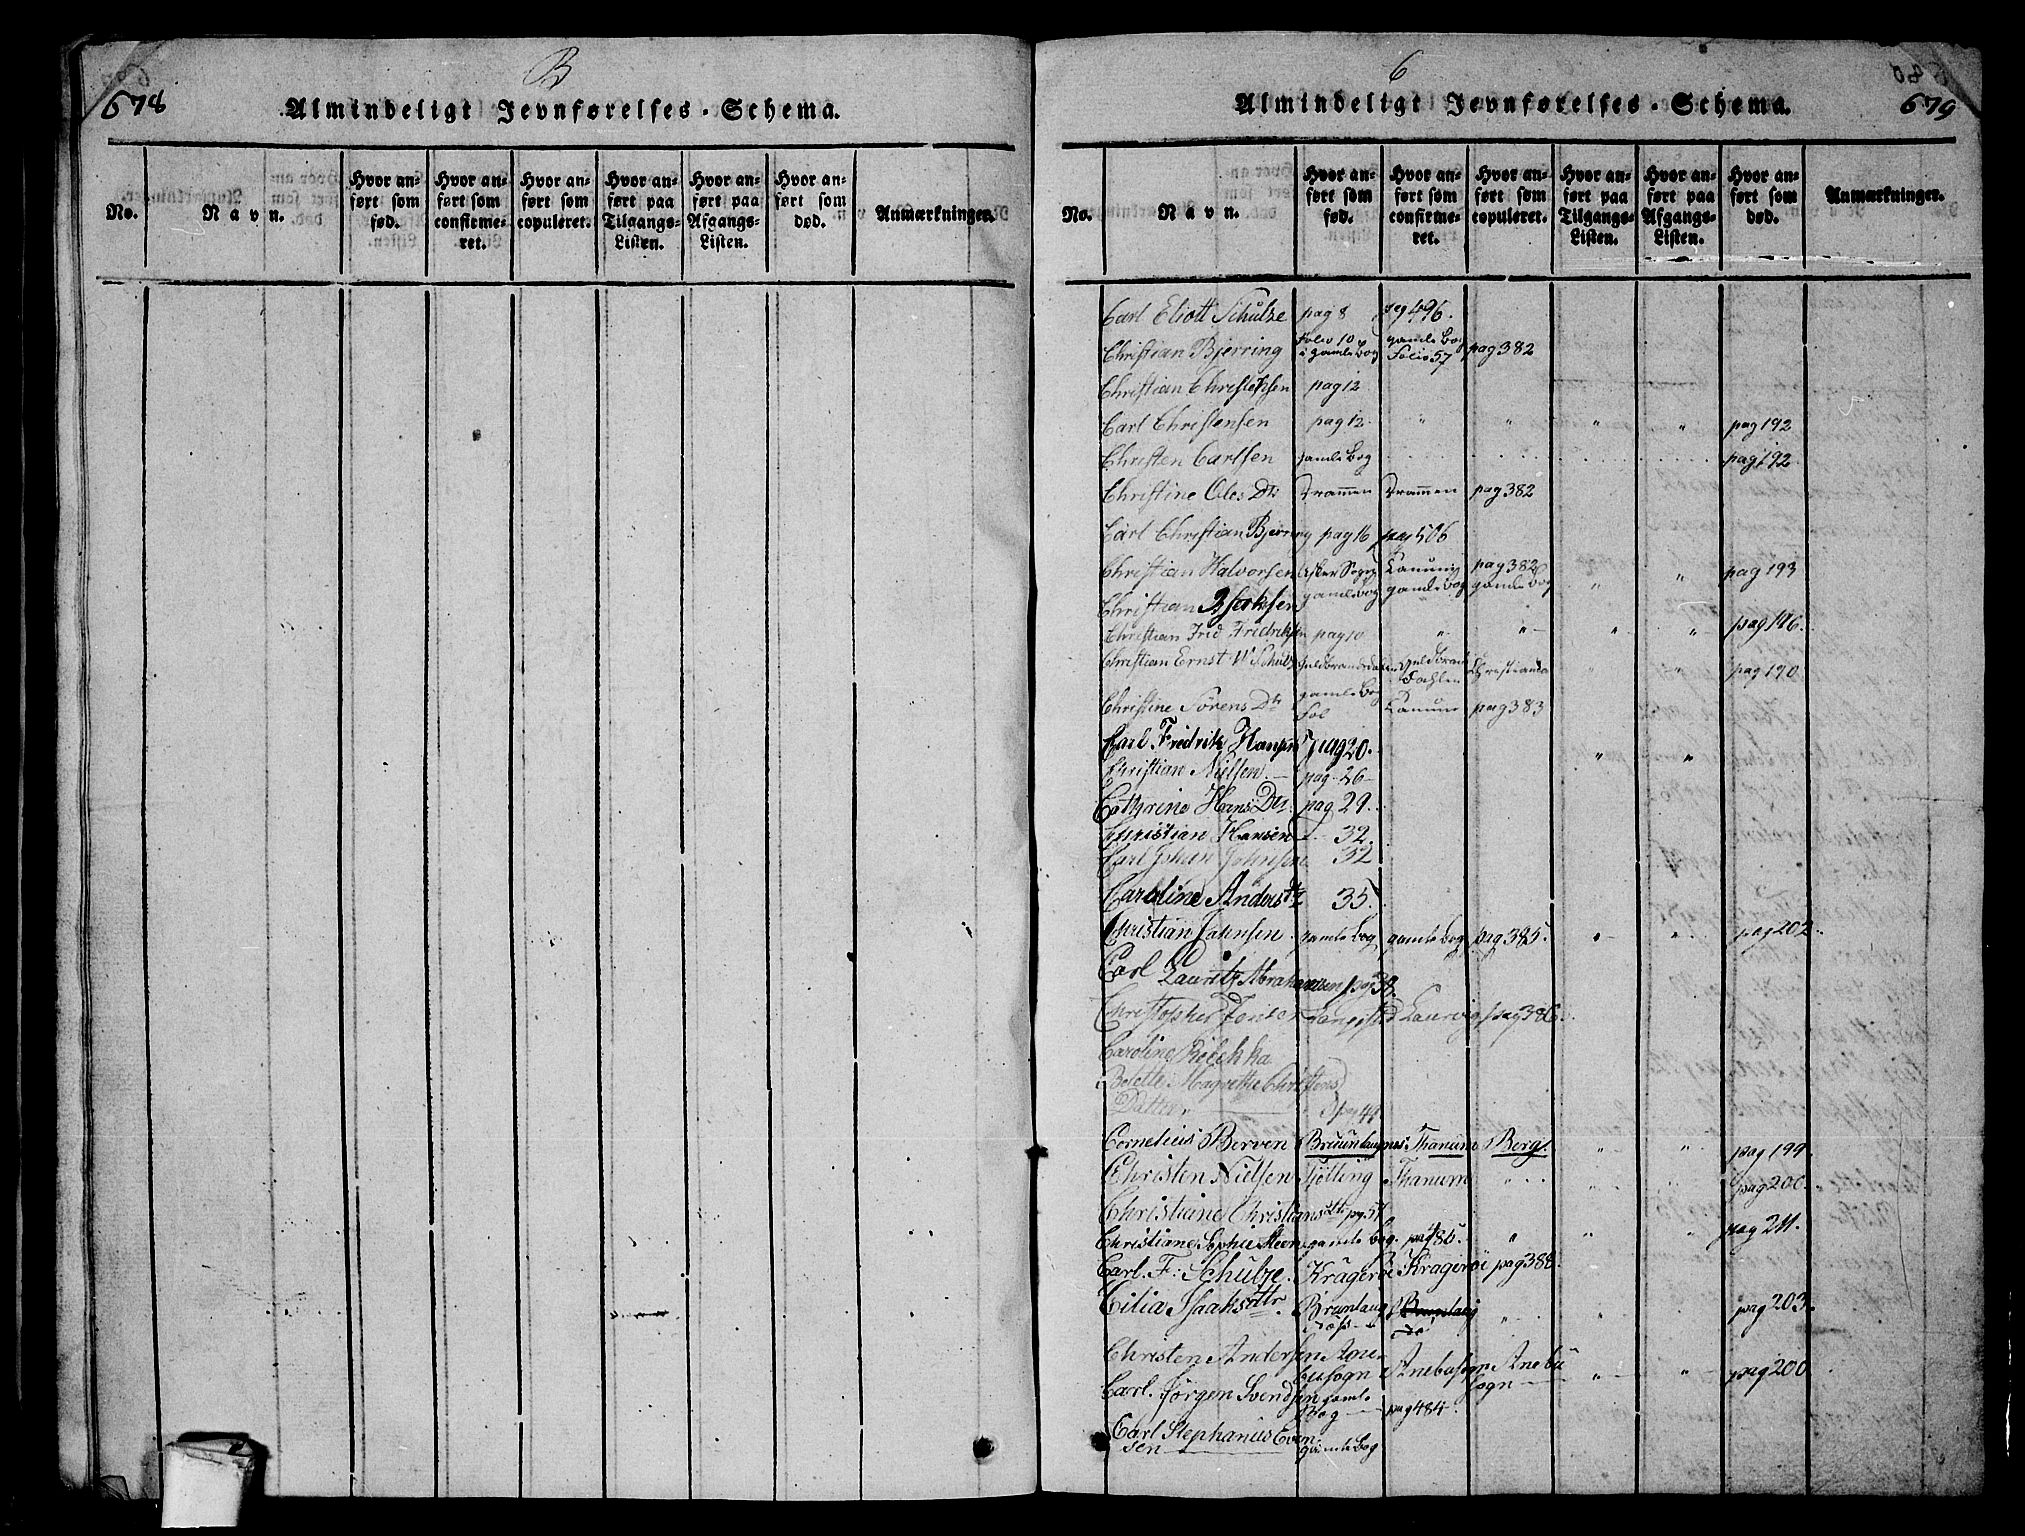 678
B
Almindeligt Jevnførelses-Schema.
No. Navn. Hvor anført som fød. Hvor anført som confirmeret. Hvor anført som copuleret. Hvor anført paa Tilgangs-Listen. Hvor anført paa Afgangs-Listen. Hvor anført som død. Anmærkninger.
C
679
Almindeligt Jevnførelses-Schema.
No. Navn. Hvor anført som fød. Hvor anført som confirmeret. Hvor anført som copuleret. Hvor anført paa Tilgangs-Listen. Hvor anført paa Afgangs-Listen. Hvor anført som død. Anmærkninger.
Carl Eliott Schulze pag 8 pag 496.
Christian Bjerring Folio 10 i gamle Bog gamle Bog Folio 57 pag 382
Christian Christensen pag 12
Carl Christensen pag 12 " " " " pag 192
Christen Carlsen gamle Bog pag 192
Christine Oles Dtr Drammen Drammen pag 382
Carl Christian Bjerring pag 16 pag 506
Christian Halvorsen Asker Sogn Laurvig pag 382 pag 193
Christian Isaksen gamle Bog gamle Bog gamle Bog
Christian Frid Fridriksen pag 10 " " " " pag 186.
Christian Ernst W Schulz Guldbrandsdalen Guldbrands Dahlen Christiania pag 190
Christine Sørens Dtr gamle Bog Fol Tanum pag 383
Carl Fredrik Hansen pag 20. " "
Christian Nielsen. pag. 26
Cathrine Hans Dtr. pag 29.
Christian Hansen - 32.
Carl Johan Johnsen 32
Caroline Anders Dtr 35.
Christian Johnsen gamle Bog gamle Bog pag 385. " " pag 202.
Carl Lauritz Abrahamsen pag 38.
Christopher Jensen Laurvig pag 386.
Caroline
Bolette Magrethe Christens
Datter. pag 49
Cornelius Berven Bruunlaugnes Thanum Berg. " " pag 199
Christen Nielsen Tjølling Thanum " " " pag 200.
Christiane Christians Dtr pag 57
Christiane Sophie Steen gamle Bog. pag 485. " " " pag 211.
Carl. F. Schulze. Kragerøe Kragerøe pag 388.
Cilia Isaksdtr Brunlaugnæss Brunlaug " " " pag 203.
Christen Andersen Anebusogn Anebusogn Anebusogn " " pag 200
Carl. Jørgen Svendsen gamle Bog pag 484.
Carl Stephanus Evensen gamle Bog